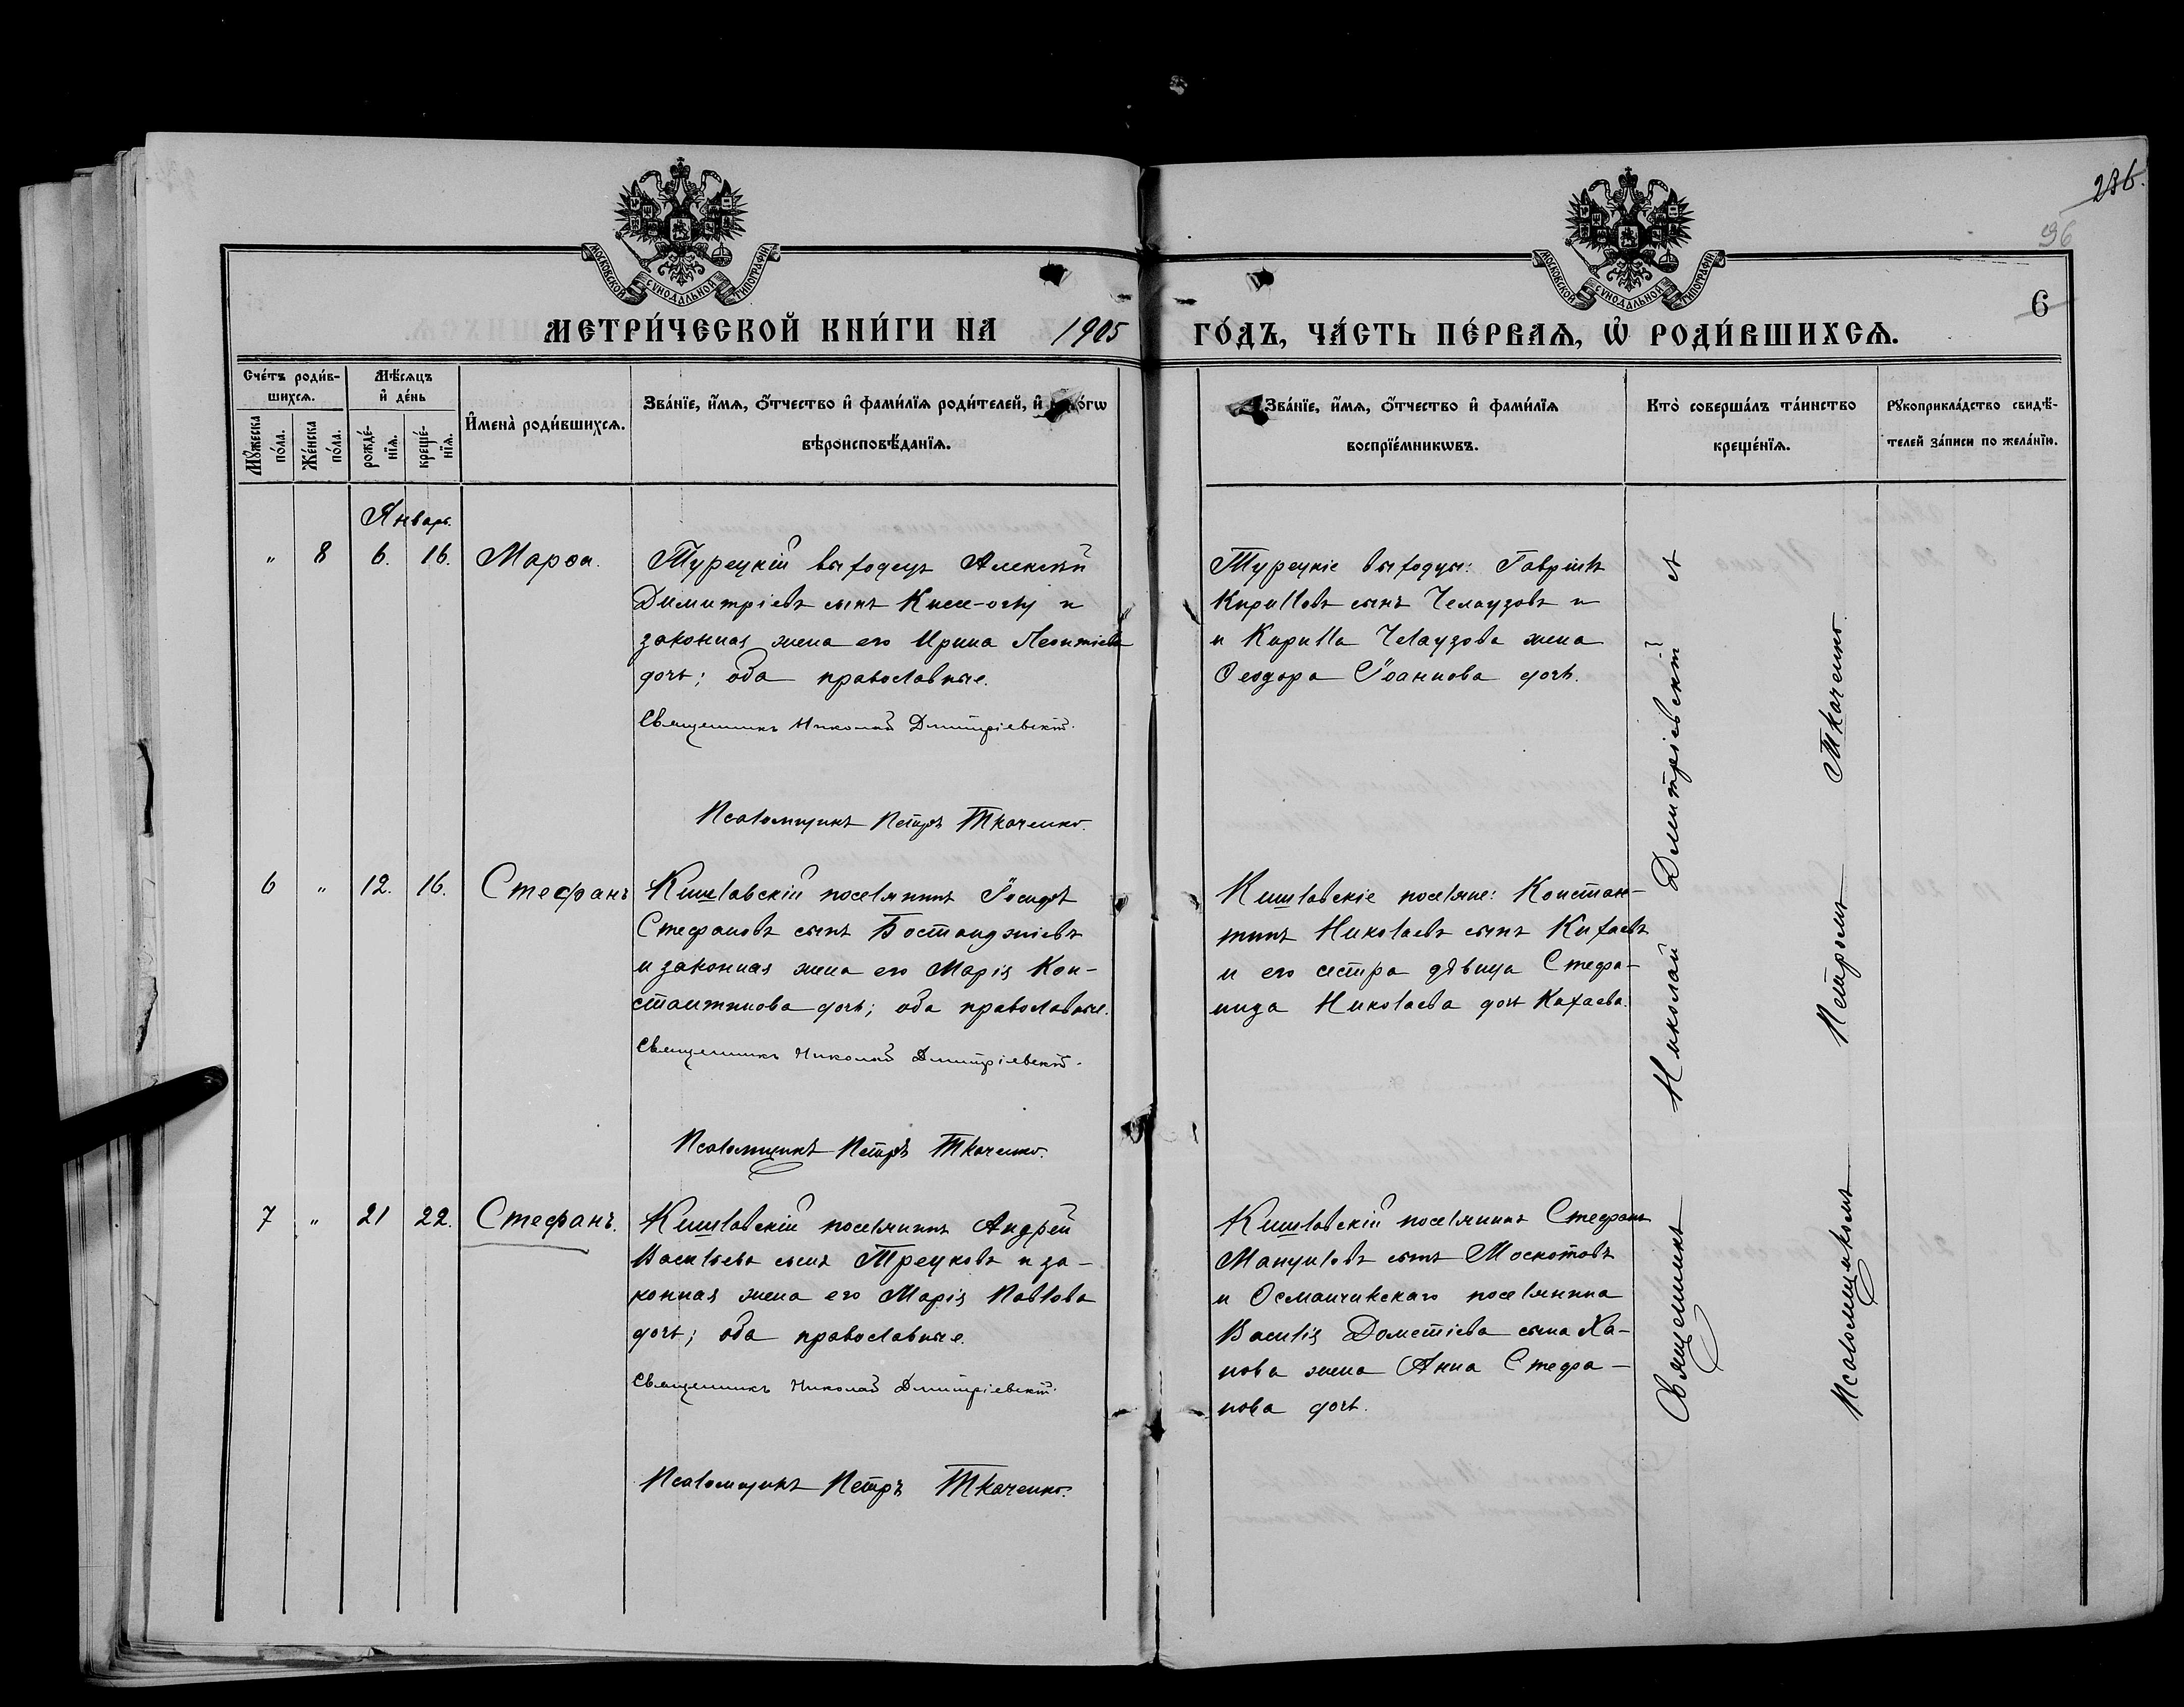 236.
96
6
МОСКОВСКОЙ СѴНОДАЛЬНОЙ ТИПОГРАФІИ
МОСКОВСКОЙ СѴНОДАЛЬНОЙ ТИПОГРАФІИ
МЕТРИ́ЧЕСКОЙ КНИ́ГИ НА 1905 ГО́ДЪ, ЧА́СТЬ ПЕ́РВАѦ, Ѡ҆ РОДИ́ВШИХСѦ.
Сче́тъ роди́в-
шихсѧ.
Мꙋ́жеска по́ла.
Же́нска по́ла.
Мѣ́сѧцъ и҆ де́нь
рожде́-
нїѧ.
креще́-
нїѧ.
И҆мена̀ роди́вшихсѧ.
Зва́нїе, и҆́мѧ, ѻ҆́тчество и҆ фами́лїѧ роди́телей, и҆
вѣроисповѣ́данїѧ.
Зва́нїе, и҆́мѧ, ѻ҆́тчество и҆ фами́лїѧ
воспрїе́мникѡвъ.
Кто̀ соверша́лъ та́инство
креще́нїѧ.
Рꙋкоприкла́дство свидѣ́-
телей за́писи по жела́нїю.
Январь.
" 8 6. 16. Марѳа.
Турецкій выходецъ Алексѣй
Димитріевъ сынъ Кисе-оглу и
законная жена его Ирина Леонтіева
дочь; оба православные.
Священникъ Николай Дмитріевскій.
Псаломщикъ Петръ Ткаченко.
Турецкіе выходцы: Гавріилъ
Кирилловъ сынъ Челаузовъ и
и Кирилла Челаузова жена
Ѳеодора Іоаннова дочь.
6 " 12. 16. Стефанъ
Кишлавскій поселянинъ Іосифъ
Стефановъ сынъ Бостанджіевъ
и законная жена его Марія Кон-
стантинова дочь; оба православные.
Священникъ Николай Дмитріевскій.
Псаломщикъ Петръ Ткаченко.
Кишлавскіе поселяне: Констан-
тинъ Николаевъ сынъ Кихаевъ
и его сестра дѣвица Стефа-
нида Николаева дочь Кихаева.
7 " 21 22. Стефанъ.
Кишлавскій поселянинъ Андрей
Васильевъ сынъ Трецковъ и за-
конная жена его Марія Павлова
дочь; оба православные.
Священникъ Николай Дмитріевскій.
Псаломщикъ Петръ Ткаченко.
Кишлавскій поселянинъ Стефанъ
Мануиловъ сынъ Москотовъ
и Османчикскаго поселянина
Василія Дометіева сына Ха-
нова жена Анна Стефа-
нова дочь.
Священникъ Николай Дмитріевскій с
Псаломщикомъ Петромъ Ткаченко.